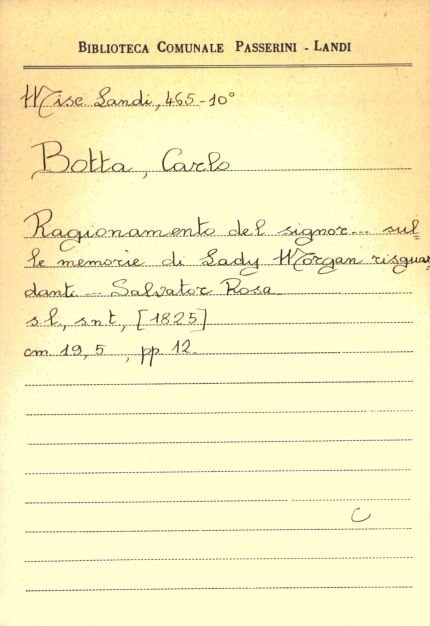 BIBLIOTECA COMUNALE PASSERINI - LANDI
Misc. Landi, 465-10°
Botta, Carlo
Ragionamento del signor... sul=
le memorie di Lady Morgan risguar
danti ... Salvator Rosa
s.l., s.n.t., [1825]
cm 19,5, pp. 12.
C